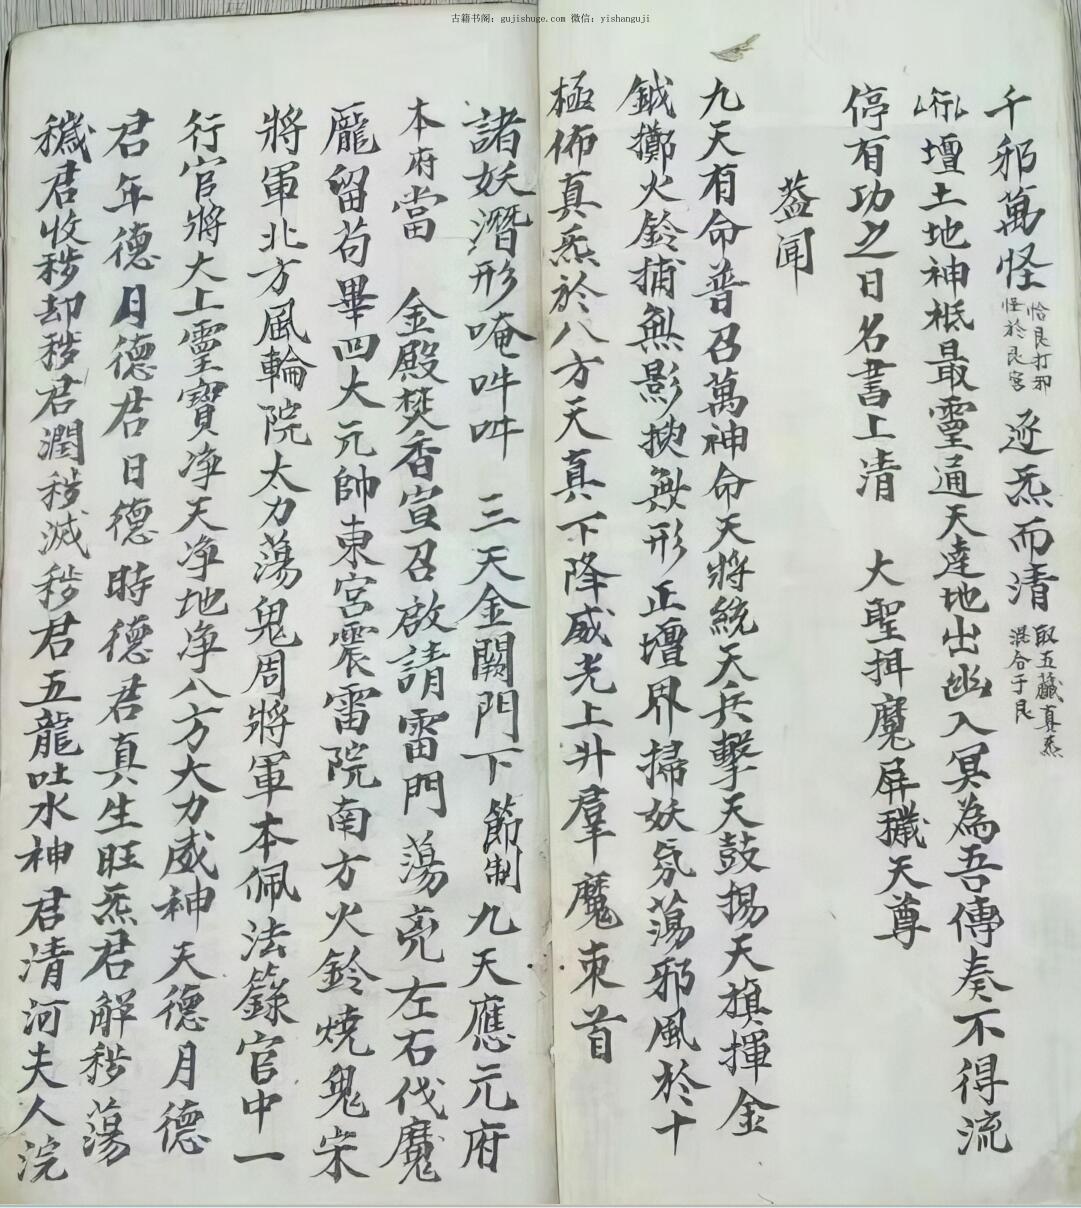 古籍书阁：gujishuge.com 微信：yishanguji
千邪萬怪
恰艮打邪
怪於艮宮
逆炁而清
取五臟真炁
混合于艮
行壇土地神祗最靈通天達地出幽入冥為吾傳奏不得流
停有功之日名書上清 大聖揖魔屏穢天尊
蓋聞
九天有命普召萬神命天將統天兵擊天鼓揚天旗揮金
鉞擲火鈴捕無影挾無形正壇界掃妖氛蕩邪風於十
極佈真炁於八方天真下降威光上升羣魔束首
諸妖潛形唵吽吽 三天金闕門下節制九天應元府
本府當 金殿焚香宣召啟請雷門蕩亮左右伐魔
龐留苟畢四大元帥東宮震雷院南方火鈴燒鬼宋
將軍北方風輪院太力蕩鬼周將軍本佩法籙官中一
行官將大上靈寶净天净地净八方大力威神天德月德
君年德月德君日德時德君真生旺炁君解秽蕩
穢君收秽却秽君潤秽滅秽君五龍吐水神君清河夫人浣